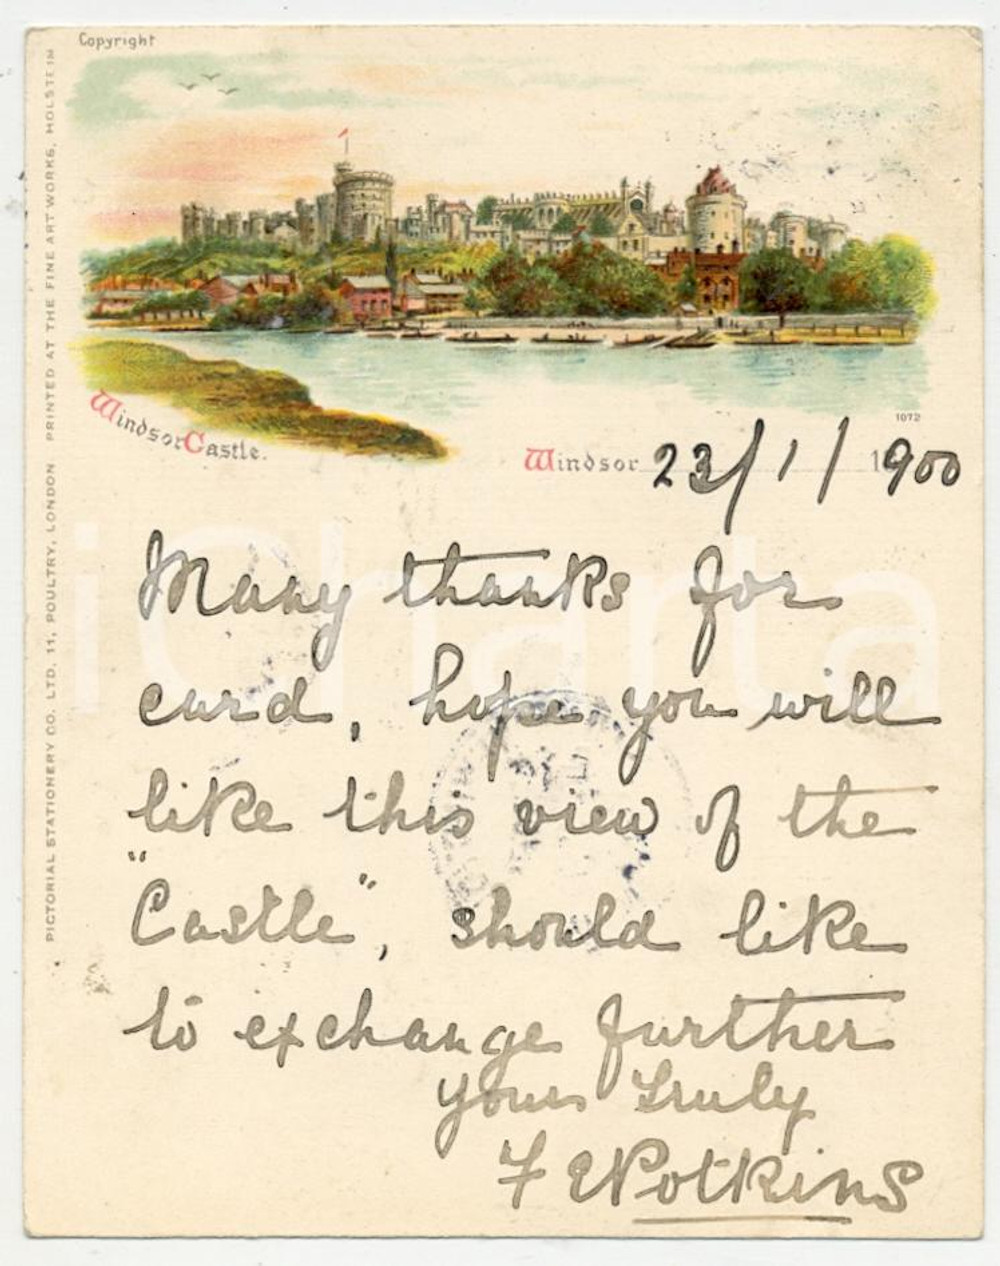 Copyright
PICTORIAL STATIONERY CO. LTD. 11, POULTRY, LONDON. PRINTED AT THE FINE ART WORKS, HOLSTEIM
Windsor Castle.
1072
Windsor 23/1/1900
Many thanks for
card, hope you will
like this view of the
"Castle", should like
to exchange further
yours truly
F
iCharta